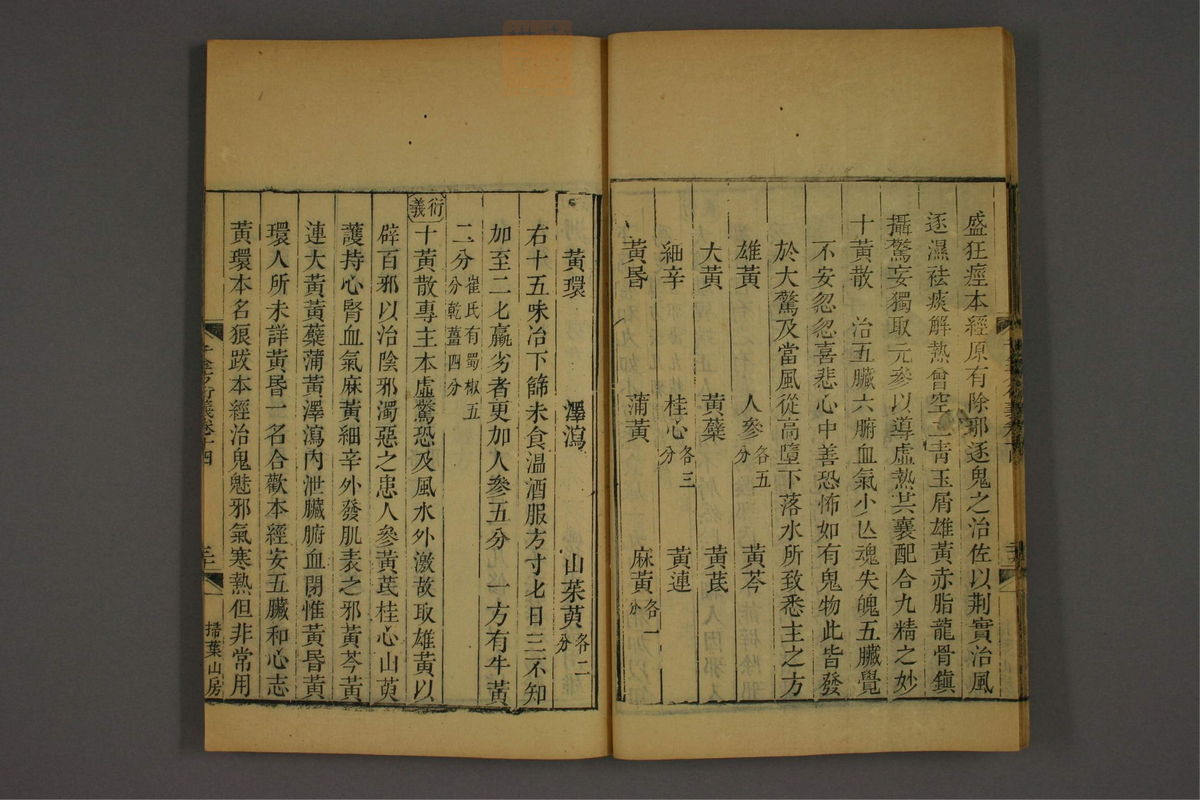 盛狂痙本經原有除邪逐鬼之治佐以荆實治風
逐濕祛痰解熱曾空青玉屑雄黃赤脂龍骨鎮
攝驚妄獨取元參以導虛熱共襄配合九精之妙
十黃散　治五臟六腑血氣少亾魂失魄五臟覺
不安忽忽喜悲心中善恐怖如有鬼物此皆發
於大驚及當風從高墮下落水所致悉主之方
雄黃　人參各五分　黃芩
大黃　黃蘗　黃芪
細辛　桂心各三分　黃連
黃昬　蒲黃　麻黃各一分
黃環　澤瀉　山茱萸各二分
右十五味冶下篩未食温酒服方寸匕日三不知
加至二匕羸劣者更加人參五分一方有牛黃
二分崔氏有蜀椒五分乾薑四分
衍義十黃散專主本虛驚恐及風水外激故取雄黃以
辟百邪以治陰邪濁惡之患人參黃芪桂心山萸
護持心腎血氣麻黃細辛外發肌表之邪黃芩黃
連大黃黃蘗蒲黃澤瀉内泄臟腑血閉惟黃昬黃
環人所未詳黃昬一名合歡本經安五臟和心志
黃環本名狼跋本經治鬼魅邪氣寒熱但非常用
千金方衍義卷十四
三
掃葉山房